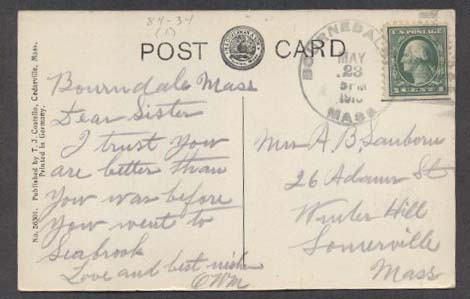 84-34
(1)
POST CARD
BOURNEDALE
MAY
23
5 PM
MASS.
U.S. POSTAGE
1 CENT 1
No. 56301. Published by T. J. Costello, Cedarville, Mass.
Printed in Germany.
Bourndale Mass
Dear Sister
I trust you
are better than
you was before
you went to
Seabrook
Love and best wishes
CWM
Mrs A. B. Sanborn
26 Adams St
Winter Hill
Somerville
Mass